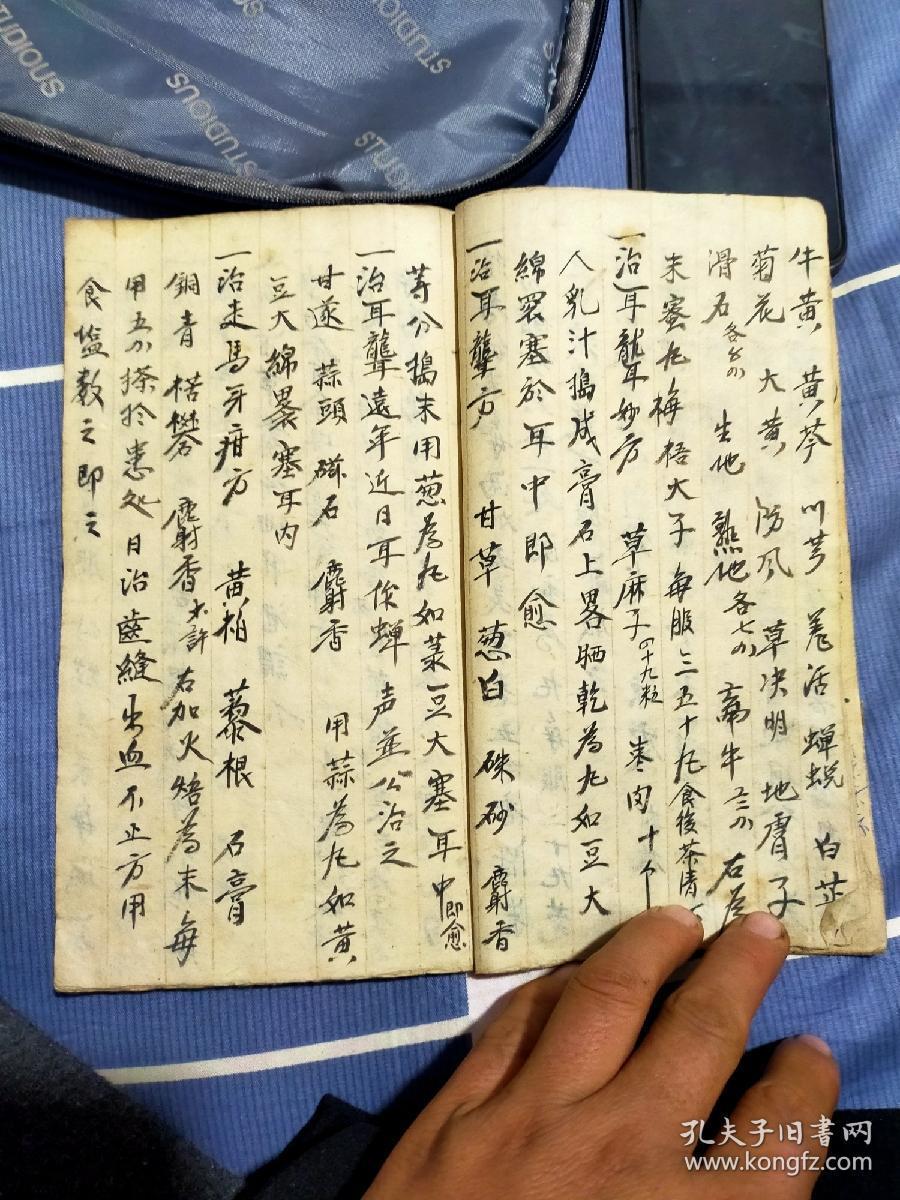 牛黄 黄芩 川芎 羌活 蝉蜕 白芷
菊花 大黄 防风 草决明 地膚子
滑石 各 生地 熟地 各七 牛 右為
末蜜丸梅梧大子每服三五十丸食後茶清下
一治耳龍耳妙方 草麻子 四十九粒 枣肉十个
人乳汁搗成膏石上畧晒乾為丸如豆大
綿裹塞於耳中即愈
一治耳聾方 甘草 葱白 硃砂 麝香
等分搗末用葱為丸如菉豆大塞耳中即愈
一治耳聾遠年近日耳作蝉声並公治之
甘遂 蒜頭 磁石 麝香 用蒜為丸如黄
豆大綿裹塞耳内
一治走馬牙疳方 黄柏 藜根 石膏
銅青 枯礬 麝香 少許 右加火焙為末每
用五 搽於患処 日治齒縫出血不止方用
食盐敷之即之
STUDIOUS
STUDIOUS
STUDIOUS
STUDIOUS
孔夫子旧书网
www.kongfz.com